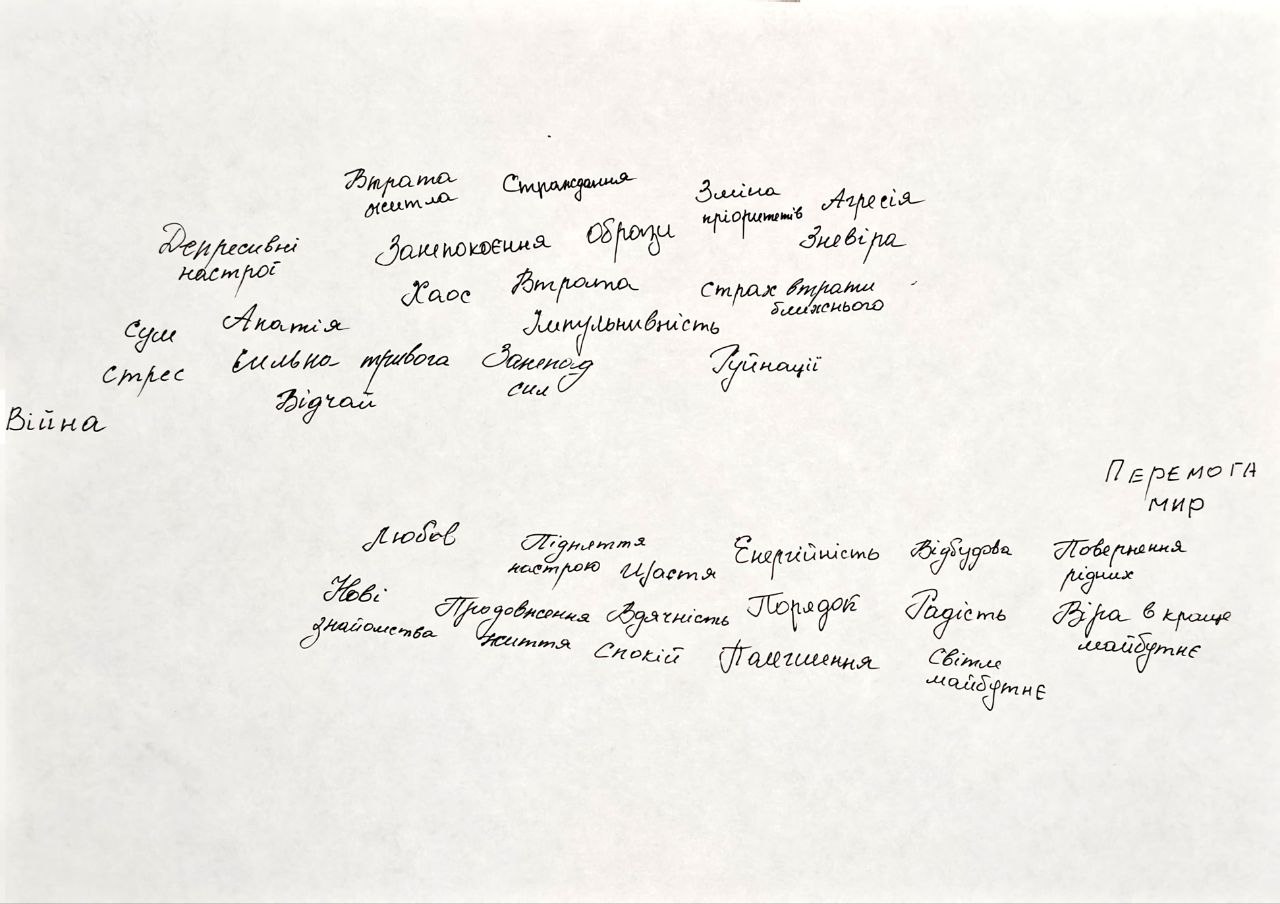 Втрата
житла
Страждання
Зміна
пріоритетів
Агресія
Зневіра
Депресивні
настрої
Занепокоєння
Образи
Хаос
Втрата
страх втрати
ближнього
Сум
Апатія
Імпульнивність
стрес
сильна тривога
Занепад
сил
Руйнації
Відчай
Війна
ПЕРЕМОГА
МИР
Любов
Підняття
настрою
Щастя
Енергійність
Відбудова
Повернення
рідних
Нові
знайомства
Продовження
життя
Вдячність
Порядок
Радість
Віра в краще
майбутнє
Спокій
Полегшення
Світле
майбутнє